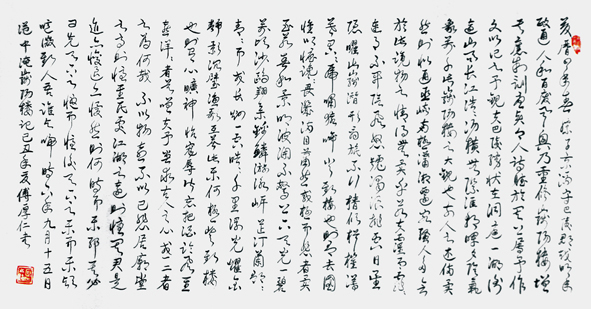 慶曆四年春滕子京謫守巴陵郡越明年
政通人和百廢具興乃重修岳陽樓增
其舊制刻唐賢今人詩賦於其上屬予作
文以記之予觀夫巴陵勝狀在洞庭一湖銜
遠山吞長江浩浩湯湯橫無際涯朝暉夕陰氣
象萬千此則岳陽樓之大觀也前人之述備矣
然則北通巫峽南極瀟湘遷客騷人多會
於此覽物之情得無異乎若夫霪雨霏霏
連月不開陰風怒號濁浪排空日星
隱曜山岳潛形商旅不行檣傾楫摧薄
暮冥冥虎嘯猿啼登斯樓也則有去國
懷鄉憂讒畏譏滿目蕭然感極而悲者矣
至若春和景明波瀾不驚上下天光一碧
萬頃沙鷗翔集錦鱗游泳岸芷汀蘭郁郁
青青而或長煙一空皓月千里浮光耀金
靜影沉璧漁歌互答此樂何極登斯樓
也則有心曠神怡寵辱偕忘把酒臨風其
喜洋洋者矣嗟夫予嘗求古仁人之心或異二者
之為何哉不以物喜不以己悲居廟堂
之高則憂其民處江湖之遠則憂其君是
進亦憂退亦憂然則何時而樂耶其必
曰先天下之憂而憂後天下之樂而樂乎
噫微斯人吾誰與歸時六年九月十五日
范仲淹岳陽樓記己丑年夏傅厚仁書